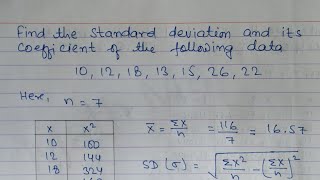 Find the Standard deviation and its
Coefficient of the following data
10, 12, 18, 13, 15, 26, 22
Here,
n = 7
x x²
10 100
12 144
18 324
x̄ = Σx/n = 116/7 = 16.57
SD (σ) = √(Σx²/n - (Σx/n)²)